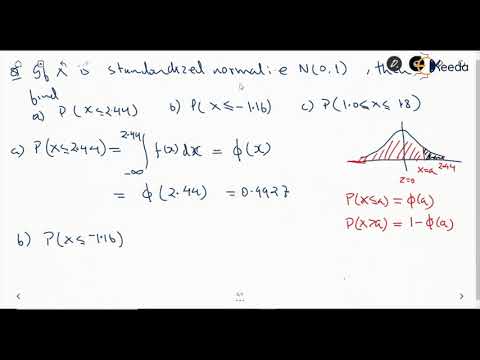 Q If X is standardized normal i.e N(0,1), then
find
a) P(X≤2.44) b) P(X≤-1.16) c) P(1.0≤X≤1.8)
a) P(X≤2.44) = ∫_{-∞}^{2.44} f(x)dx = ϕ(x)
= ϕ(2.44) = 0.9927
b) P(X≤-1.16)
x=a 2.44
z=0
P(X≤a) = ϕ(a)
P(X>a) = 1-ϕ(a)
Keeda